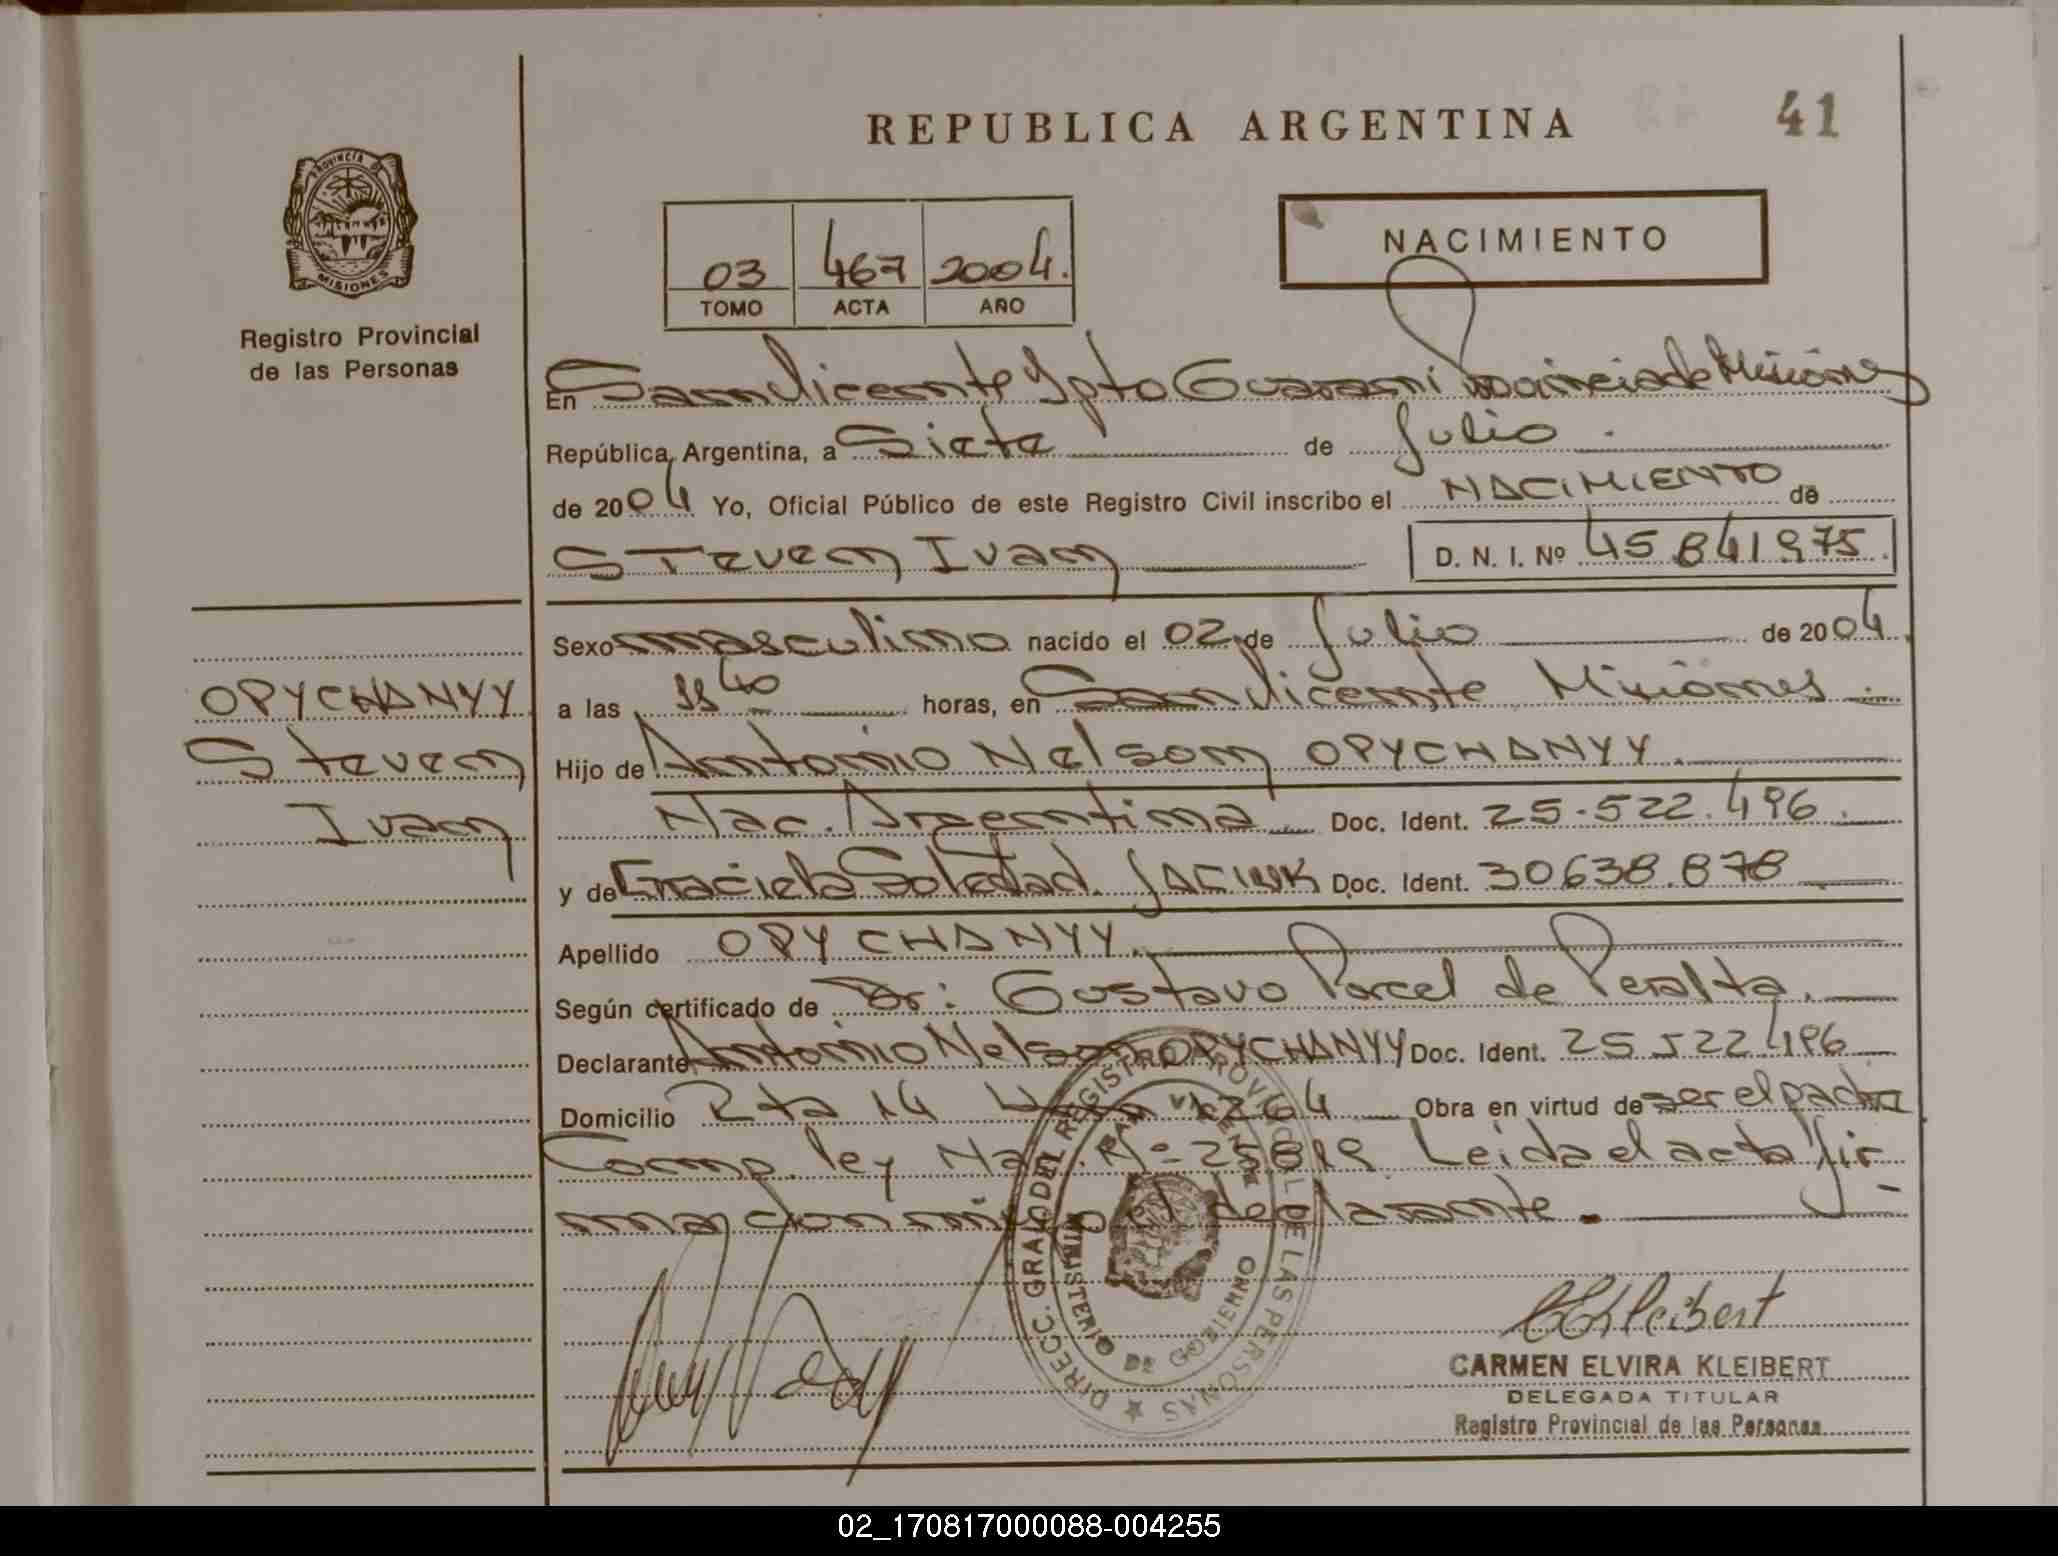 REPUBLICA ARGENTINA
41
PROVINCIA DE
MISIONES
Registro Provincial
de las Personas
03 467 2004.
TOMO ACTA AÑO
NACIMIENTO
En San Vicente Dpto Guaraní Provincia de Misiones
República Argentina, a Siete de Julio.
de 2004 Yo, Oficial Público de este Registro Civil inscribo el NACIMIENTO de
Steven Ivan D. N. I. Nº 45.841.975.
Sexo masculino nacido el 02 de Julio de 2004.
a las 11 40 horas, en San Vicente Misiones.
Hijo de Antonio Nelson OPYCHANYY.
Nac. Argentina Doc. Ident. 25.522.496.
y de Graciela Soledad Doc. Ident. 30638.878
Apellido OPYCHANYY.
Según certificado de Dr: Gustavo Porcel de Peralta.
Declarante Antonio Nelson OPYCHANYY Doc. Ident. 25522496
Domicilio Rta 14 1264 Obra en virtud de ser el padre
Comp. ley Nac. Nº 25819 Leida el acta fir-
man conmigo el declarante.
OPYCHANYY
Steven
Ivan
DIRECC. GRAL. DEL REGISTRO PROVINCIAL DE LAS PERSONAS
MINISTERIO DE GOBIERNO
SAN VICENTE
CEKleibert
CARMEN ELVIRA KLEIBERT
DELEGADA TITULAR
Registro Provincial de las Personas
02_170817000088-004255